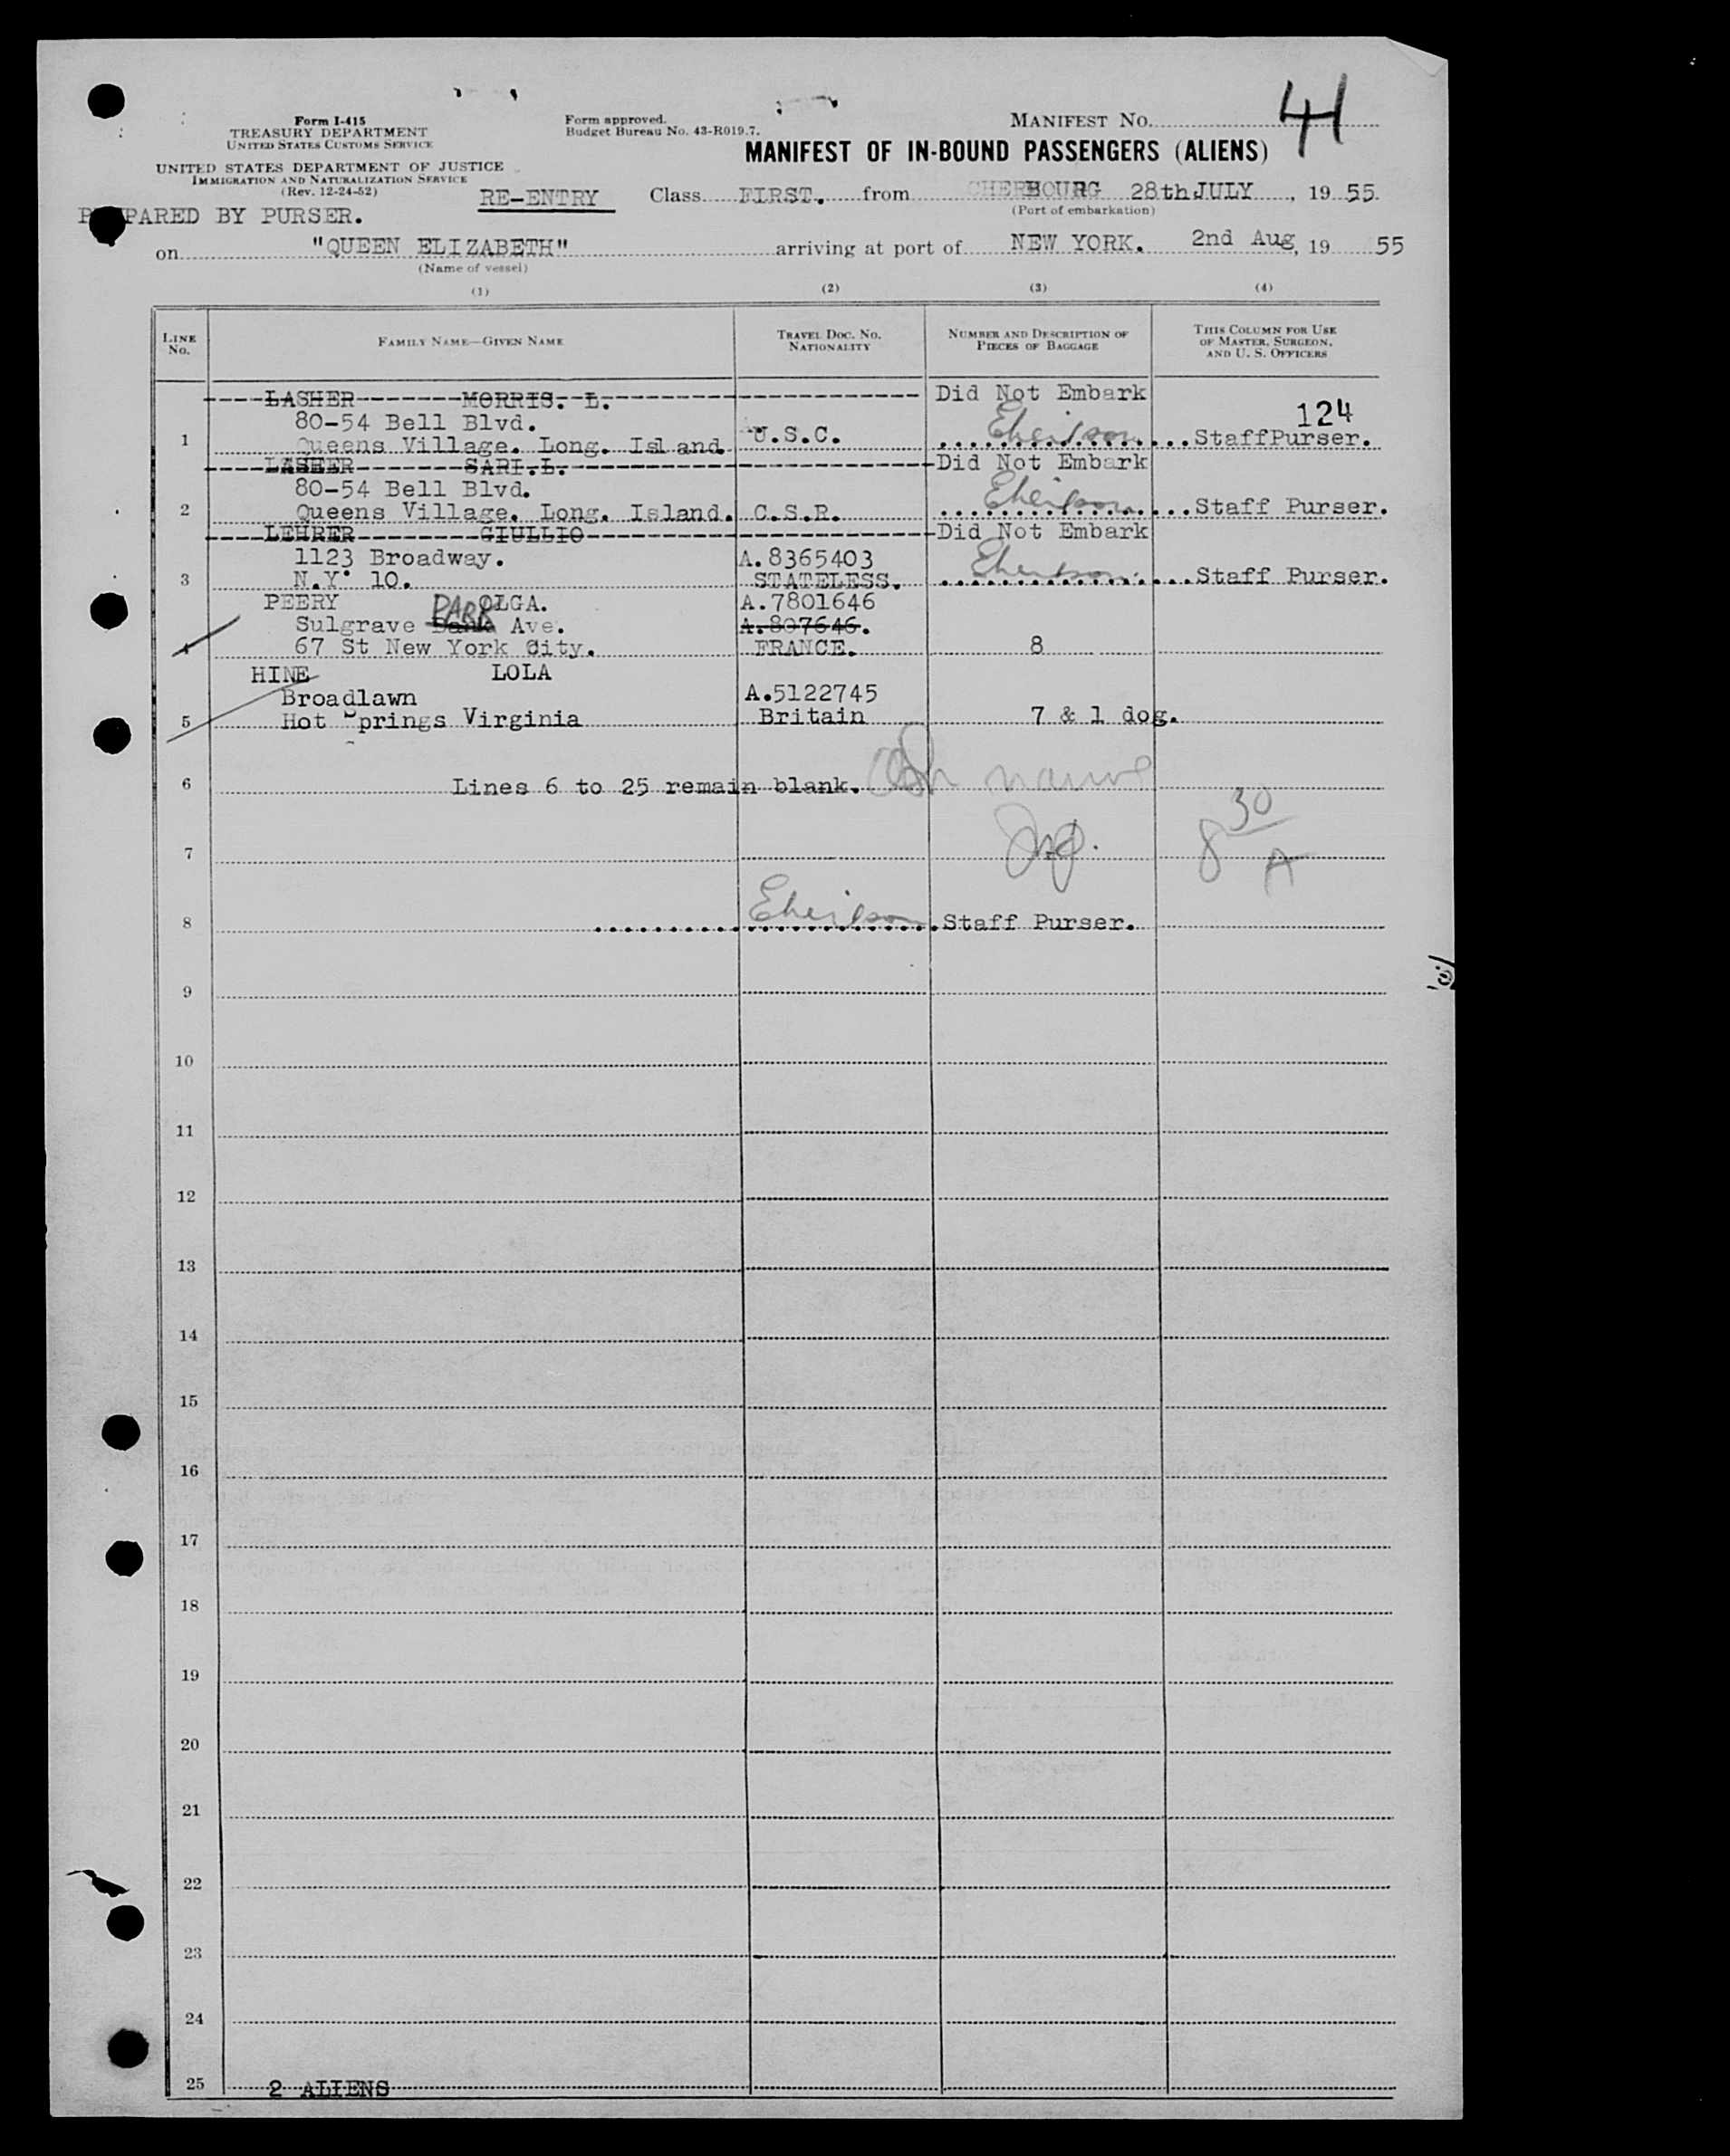 Form I-415
TREASURY DEPARTMENT
UNITED STATES CUSTOMS SERVICE
UNITED STATES DEPARTMENT OF JUSTICE
IMMIGRATION AND NATURALIZATION SERVICE
(Rev. 12-24-52)
Form approved.
Budget Bureau No. 43-R019.7.
MANIFEST NO. 41
MANIFEST OF IN-BOUND PASSENGERS (ALIENS)
RE-ENTRY Class FIRST. from CHERBOURG 28th JULY, 19 55.
(Port of embarkation)
PREPARED BY PURSER.
on "QUEEN ELIZABETH" arriving at port of NEW YORK. 2nd Aug, 19 55
(Name of vessel)
(1) (2) (3) (4)
LINE No. FAMILY NAME—GIVEN NAME TRAVEL DOC. NO. NATIONALITY NUMBER AND DESCRIPTION OF PIECES OF BAGGAGE THIS COLUMN FOR USE OF MASTER, SURGEON, AND U. S. OFFICERS
LASHER MORRIS. L. Did Not Embark
80-54 Bell Blvd. 124
1 Queens Village. Long. Island. U.S.C. StaffPurser.
LASHER SARI.L. Did Not Embark
80-54 Bell Blvd.
2 Queens Village. Long. Island. C.S.R. Staff Purser.
LEHRER GIULLIO Did Not Embark
1123 Broadway. A.8365403
3 N.Y. 10. STATELESS. Staff Purser.
PEERY OLGA. A.7801646
Sulgrave Bank PARK Ave. A.807646.
4 67 St New York City. FRANCE. 8
HINE LOLA
Broadlawn A.5122745
5 Hot Springs Virginia Britain 7 & 1 dog.
6 Lines 6 to 25 remain blank.
7 8 30 A
8 Staff Purser.
9
10
11
12
13
14
15
16
17
18
19
20
21
22
23
24
25 2 ALIENS